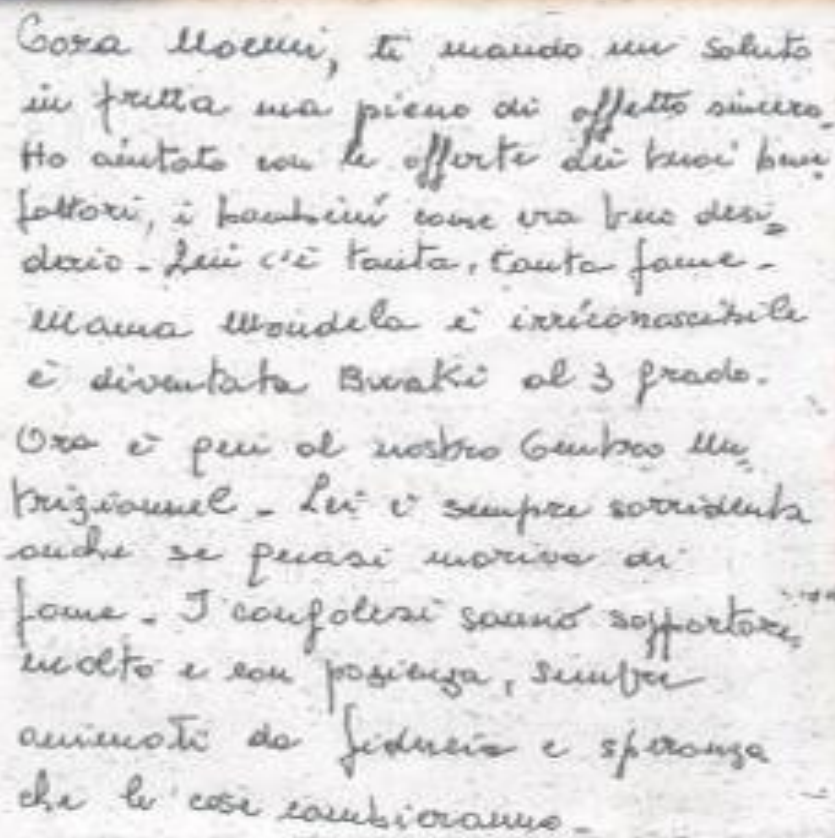 Cara Noemi, ti mando un saluto
in fretta ma pieno di affetto sincero.
Ho aiutato con le offerte dei tuoi bene=
fattori, i bambini come era tuo desi=
derio - Qui c'è tanta, tanta fame -
Mama Mondela è irriconoscibile
è diventata Bwaki al 3 grado.
Ora è qui al nostro Centro Nu=
trizionnel - Lei è sempre sorridente
anche se quasi moriva di
fame - I congolesi sanno sopportare
molto e con pazienza, sempre
animati da fiducia e speranza
che le cose cambieranno -